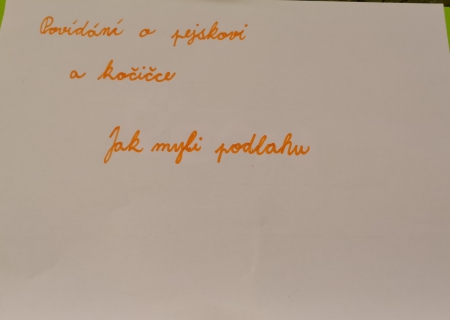 Povídání o pejskovi
a kočičce
Jak myli podlahu